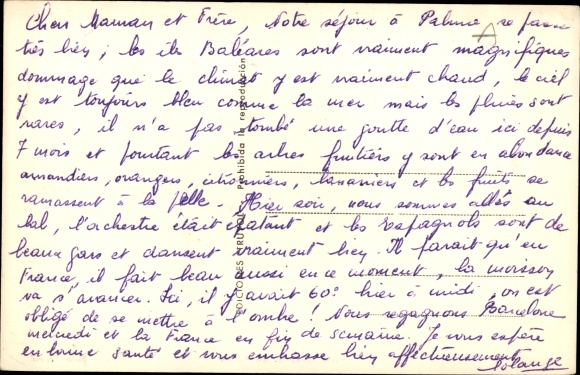 Chers Maman et Frère, Notre séjour à Palma se passe
très bien ; les îles Baléares sont vraiment magnifiques
dommage que le climat y est vraiment chaud, le ciel
y est toujours bleu comme la mer mais les pluies sont
rares, il n'a pas tombé une goutte d'eau ici depuis
7 mois et pourtant les arbres fruitiers y sont en abondance
amandiers, orangers, citronniers, bananiers et les fruits se
ramassent à la pelle. Hier soir, nous sommes allés au
bal, l'orchestre était épatant et les Espagnols sont de
beaux gars et dansent vraiment bien. Il parait qu'en
France, il fait beau aussi en ce moment, la moisson
va s'avancer. Ici, il y avait 60° hier à midi, on est
obligé de se mettre à l'ombre ! Nous regagnons Barcelone
mercredi et la France en fin de semaine. Je vous espère
en bonne santé et vous embrasse bien affectueusement
Solange
EDICIONES
Prohibida la reproducción